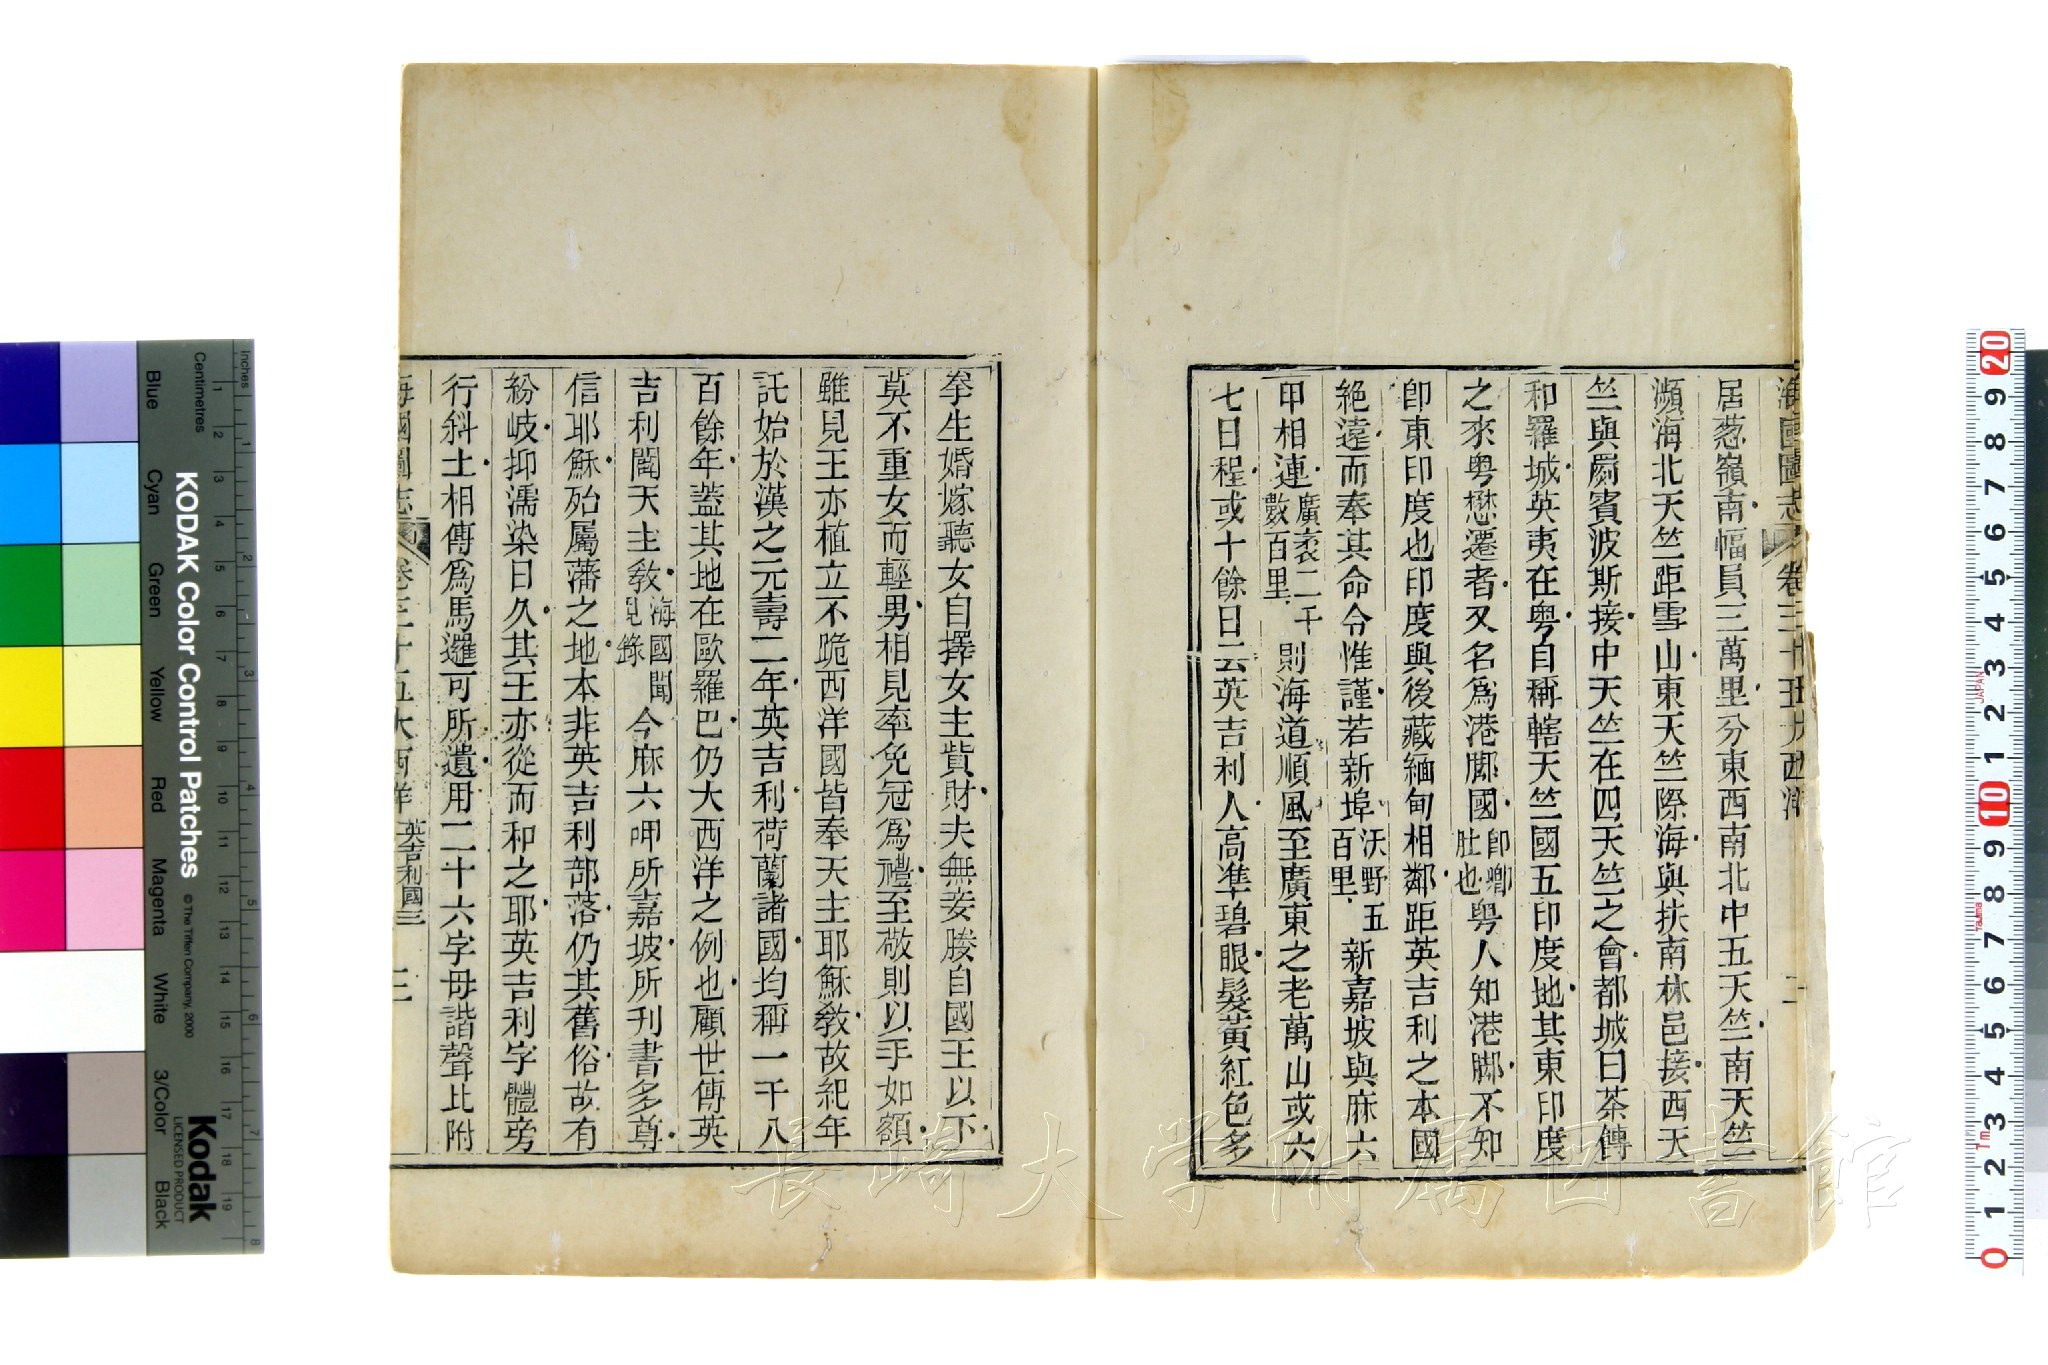 海國圖志 卷三十五 大西洋 二
居葱嶺南幅員三萬里分東西南北中五天竺南天竺
瀕海北天竺距雪山東天竺際海與扶南林邑接西天
竺與罽賓波斯接中天竺在四天竺之會都城曰茶愽
和羅城英夷在粤自稱轄天竺國五印度地其東印度
之來粤懋遷者又名爲港腳國卽嚮肚也粤人知港腳不知
卽東印度也印度與後藏緬甸相鄰距英吉利之本國
絶遠而奉其命令惟謹若新埠沃野五百里新嘉坡與麻六
甲相連廣袤二千數百里則海道順風至廣東之老萬山或六
七日程或十餘日云英吉利人高準碧眼髮黃紅色多
拳生婚嫁聽女自擇女主貲財夫無妾媵自國王以下
莫不重女而輕男相見率免冠爲禮至敬則以手加額
雖見王亦植立不跪西洋國皆奉天主耶穌敎故紀年
託始於漢之元壽二年英吉利荷蘭諸國均稱一千八
百餘年蓋其地在歐羅巴仍大西洋之例也顧世傳英
吉利闢天主敎海國聞見錄今麻六呷所嘉坡所刊書多尊
信耶穌殆屬藩之地本非英吉利部落仍其舊俗故有
紛岐抑濡染日久其王亦從而和之耶英吉利字體旁
行斜上相傳爲馬邏可所遺用二十六字母諧聲比附
海國圖志 卷三十五 大西洋 英吉利國三 三
KODAK Color Control Patches
© The Tiffen Company, 2000
Kodak
LICENSED PRODUCT
Inches
Centimetres
Blue Cyan Green Yellow Red Magenta White 3/Color Black
長崎大学附属図書館
JAPAN